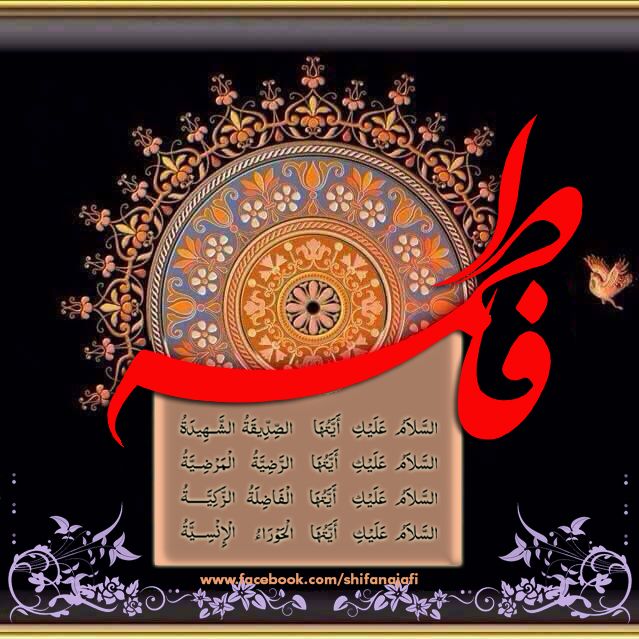 فاطمه
السَّلاَمُ عَلَيْكِ أَيَّتُهَا الصِّدِّيقَةُ الشَّهِيدَةُ
السَّلاَمُ عَلَيْكِ أَيَّتُهَا الرَّضِيَّةُ الْمَرْضِيَّةُ
السَّلاَمُ عَلَيْكِ أَيَّتُهَا الْفَاضِلَةُ الزَّكِيَّةُ
السَّلاَمُ عَلَيْكِ أَيَّتُهَا الْحَوْرَاءُ الْإِنْسِيَّةُ
www.facebook.com/shifanajafi